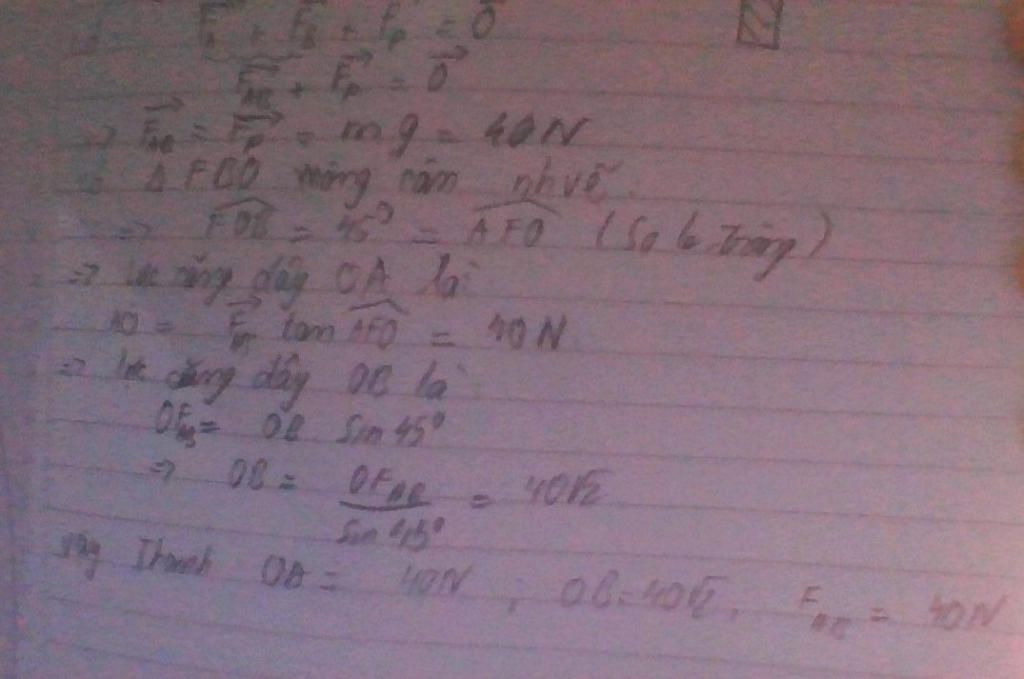 F_A + F_B + F_P = 0
F_AB + F_P = 0
=> F_AB = F_P = mg = 40N
=> Δ FBO như vẽ.
=> FOB = 45° = AFO (So le trong)
=> lực căng dây OA là
AO = F_AB tan AFO = 40N
=> lực căng dây OB là
OF_AB = OB Sin 45°
=> OB = OF_AB / Sin 45° = 40√2
Vậy Thanh OA = 40N ; OB = 40√2, F_AB = 40N